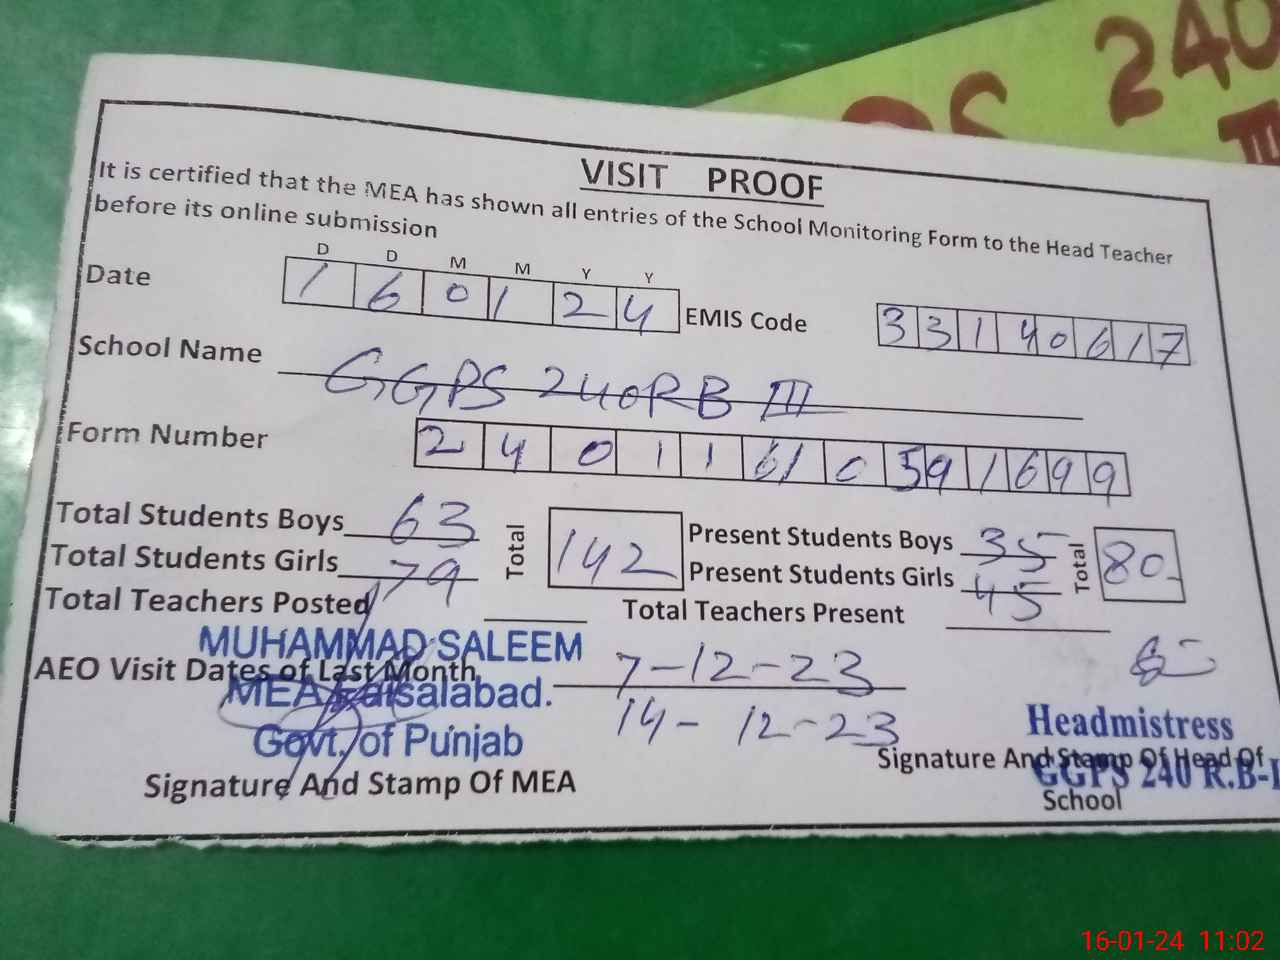 240
PS
III
VISIT PROOF
It is certified that the MEA has shown all entries of the School Monitoring Form to the Head Teacher
before its online submission
D D M M Y Y
Date 1 6 0 1 2 4 EMIS Code 3 3 1 4 0 6 1 7
School Name GGPS 240RB III
Form Number 2 4 0 1 1 6 1 0 5 9 1 6 9 9
Total Students Boys 63 Total 142 Present Students Boys 35 Total 80
Total Students Girls 79 Present Students Girls 45
Total Teachers Posted Total Teachers Present
MUHAMMAD SALEEM
AEO Visit Dates of Last Month 7-12-23
MEA Faisalabad.
14-12-23
Govt. of Punjab
Headmistress
Signature And Stamp Of MEA
Signature And Stamp Of Head Of
GGPS 240 R.B-I
School
16-01-24 11:02